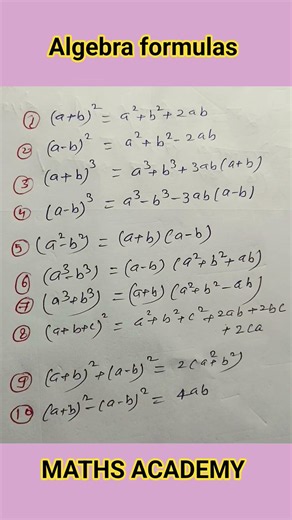 Algebra formulas
① (a+b)² = a²+b²+2ab
② (a-b)² = a²+b²-2ab
③ (a+b)³ = a³+b³+3ab(a+b)
④ (a-b)³ = a³-b³-3ab(a-b)
⑤ (a²-b²) = (a+b)(a-b)
⑥ (a³-b³) = (a-b) (a²+b²+ab)
⑦ (a³+b³) = (a+b) (a²+b²-ab)
⑧ (a+b+c)² = a²+b²+c²+2ab+2bc
+2ca
⑨ (a+b)²+(a-b)² = 2(a²+b²)
⑩ (a+b)²-(a-b)² = 4ab
MATHS ACADEMY